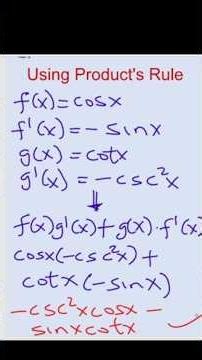 Using Product's Rule
f(x) = cosx
f'(x) = - sinx
g(x) = cotx
g'(x) = - csc²x
f(x)g'(x)+g(x)·f'(x)
cosx(-csc²x) +
cotx(-sinx)
-csc²xcosx -
sinxcotx